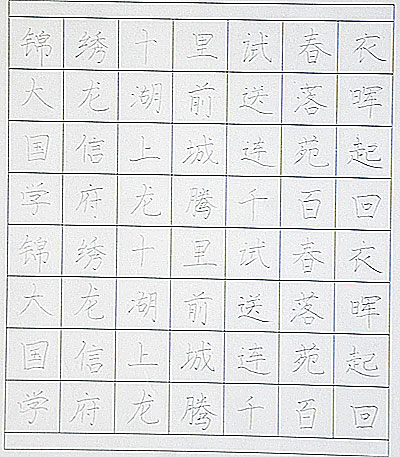 锦绣十里试春衣
大龙湖前送落晖
国信上城连苑起
学府龙腾千百回
锦绣十里试春衣
大龙湖前送落晖
国信上城连苑起
学府龙腾千百回